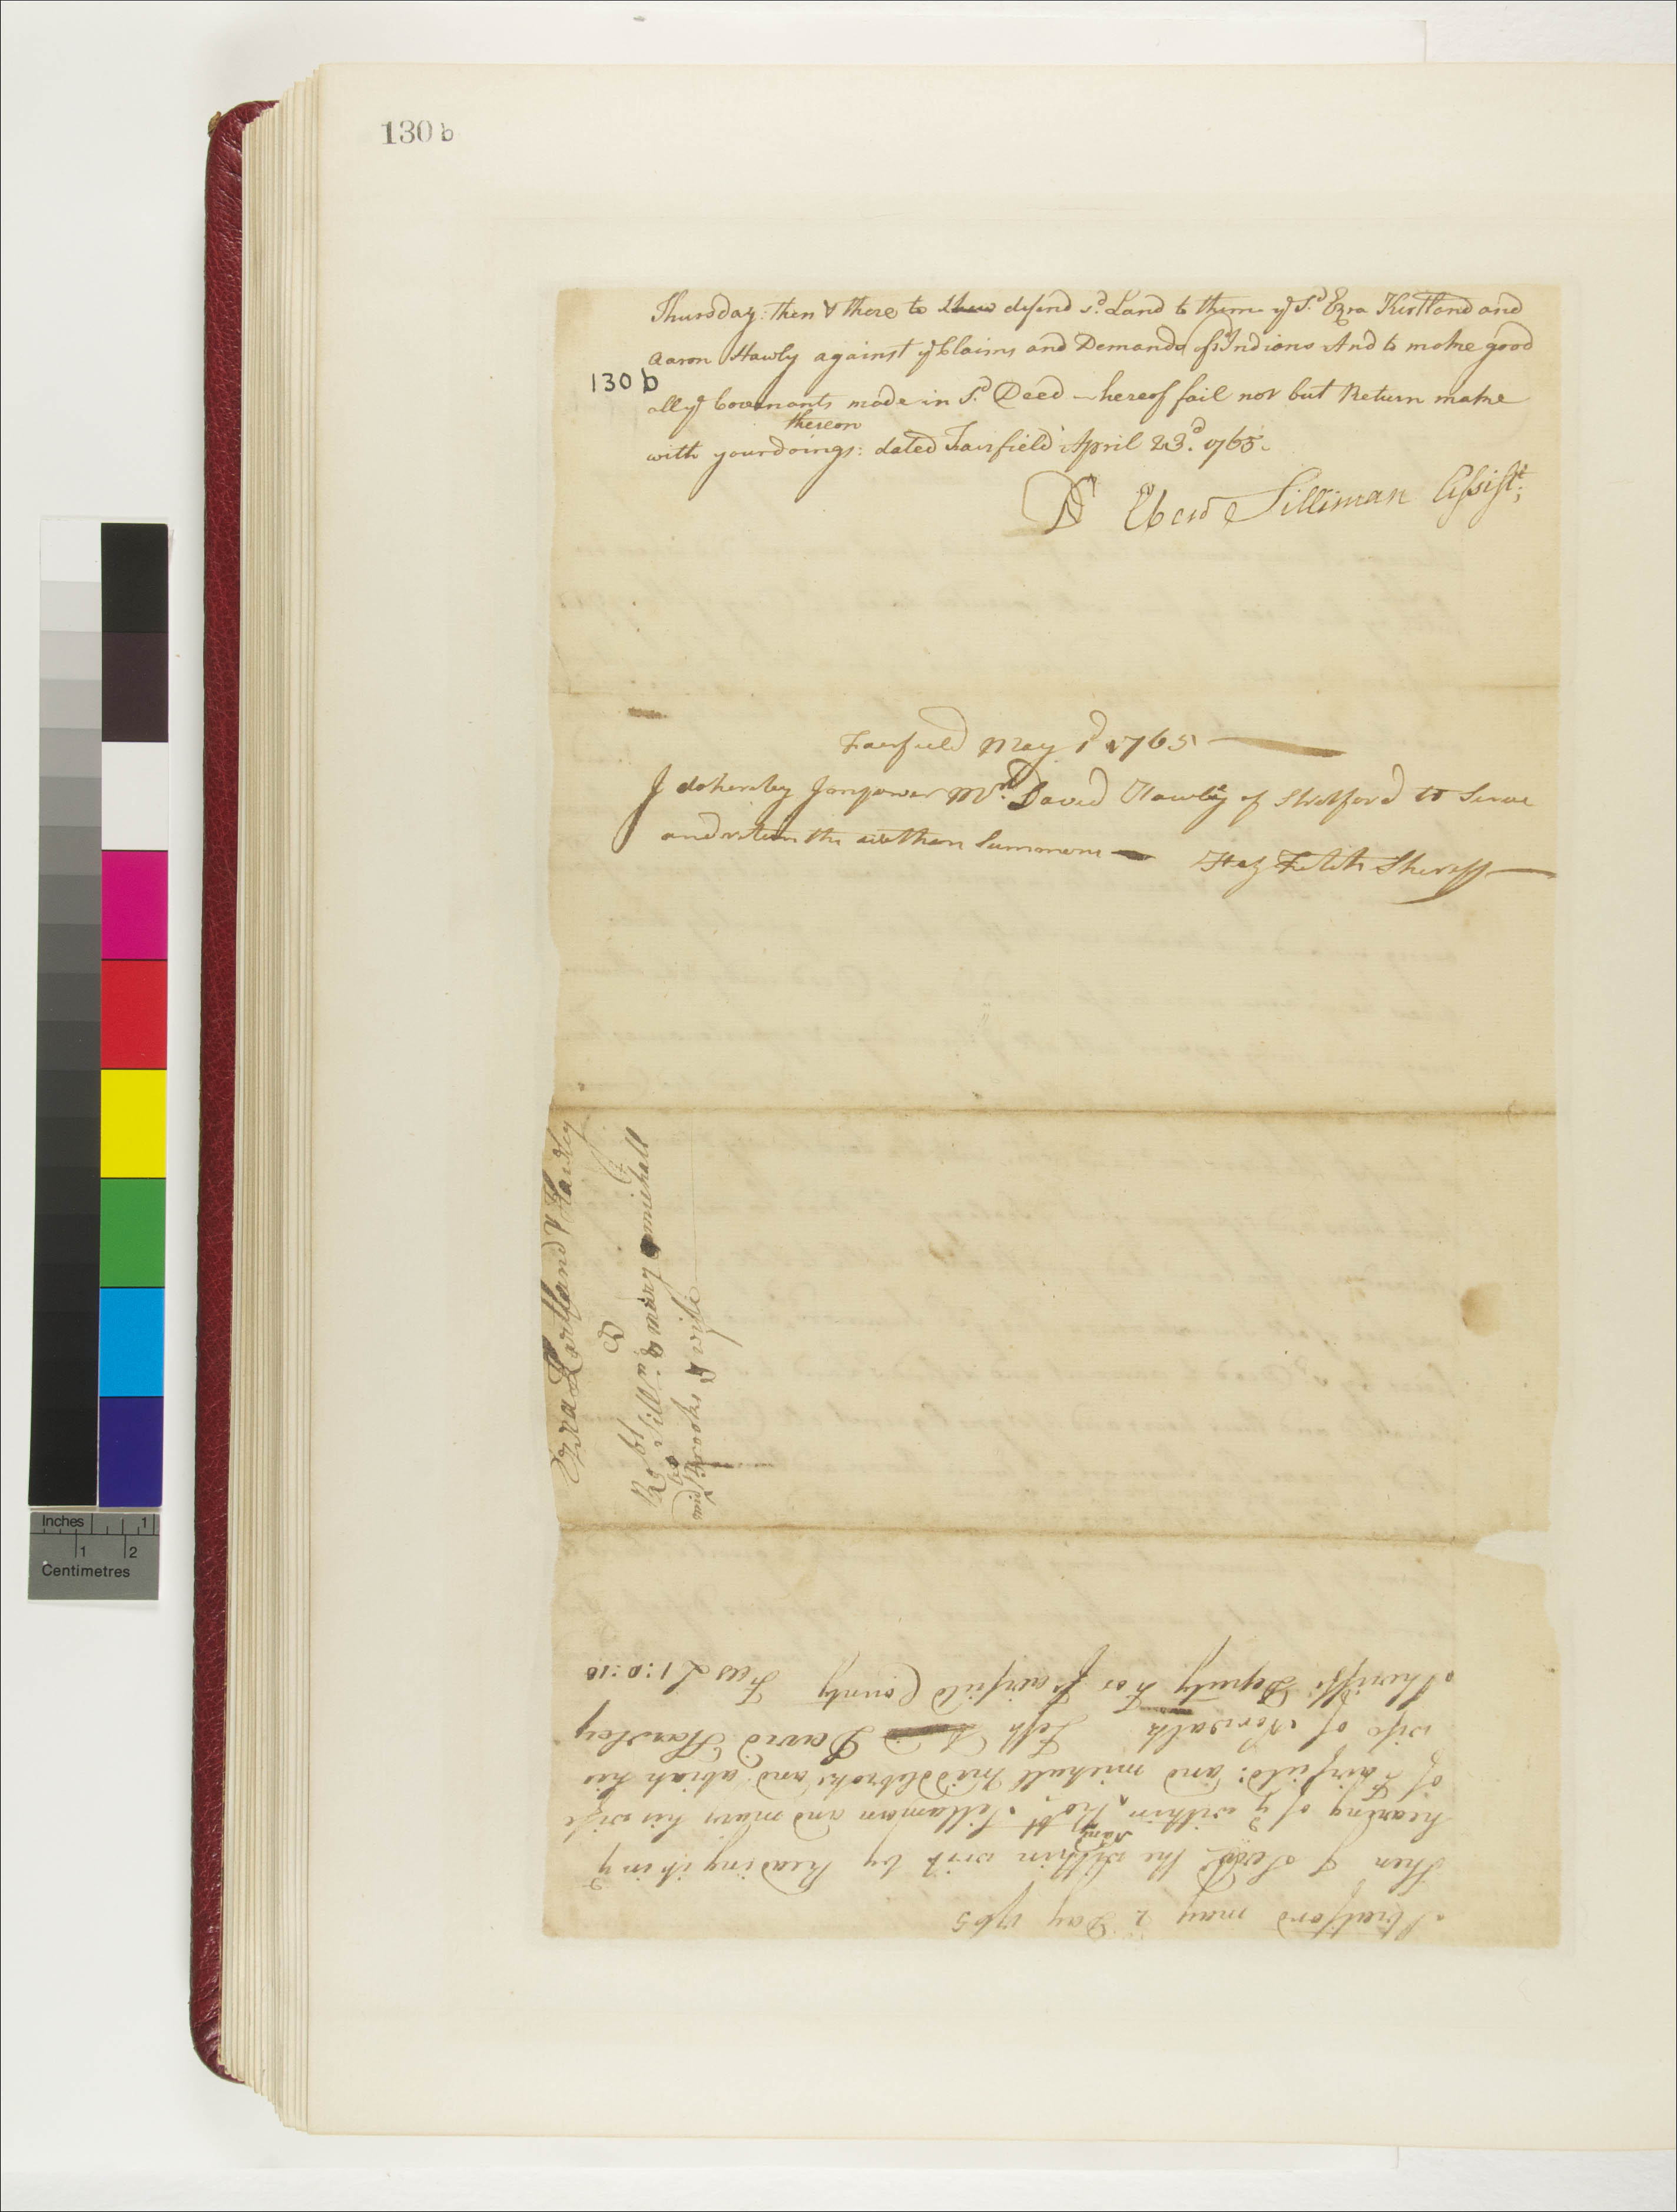 130 b
Thursday: then & there to shew defend sd. Land to them ye sd. Ezra Kirtland and
Aaron Hawly against ye Claims and Demands of sd Indians And to make good
130 b
all ye Covenants made in sd. Deed — hereof fail not but Return make
thereon
with your doings: dated Fairfield April 23d. 1765.
Ebenr Silliman Assistt;
Fairfield May 1d 1765
I do hereby Impower Mr. David Hawley of Stratford to Serve
and return the within Summons — Thad Fitch Sheriff
Ezra Kirtland & Hawley
Robt Sillmn. & mary & michall
midbrooks & wife
Stratford may 2 Day 1765
Then I Sevd the within writ by Reading it in ye
hearing of ye within Namd Robt Sillaman and mary his wife
of Fairfield: and michall middlebrooks and abiah his
wife of Norwalk Test David Hawley
Sheriffs Deputy For Fairfield County Fees £1:0:10
Inches 1
1 2
Centimetres